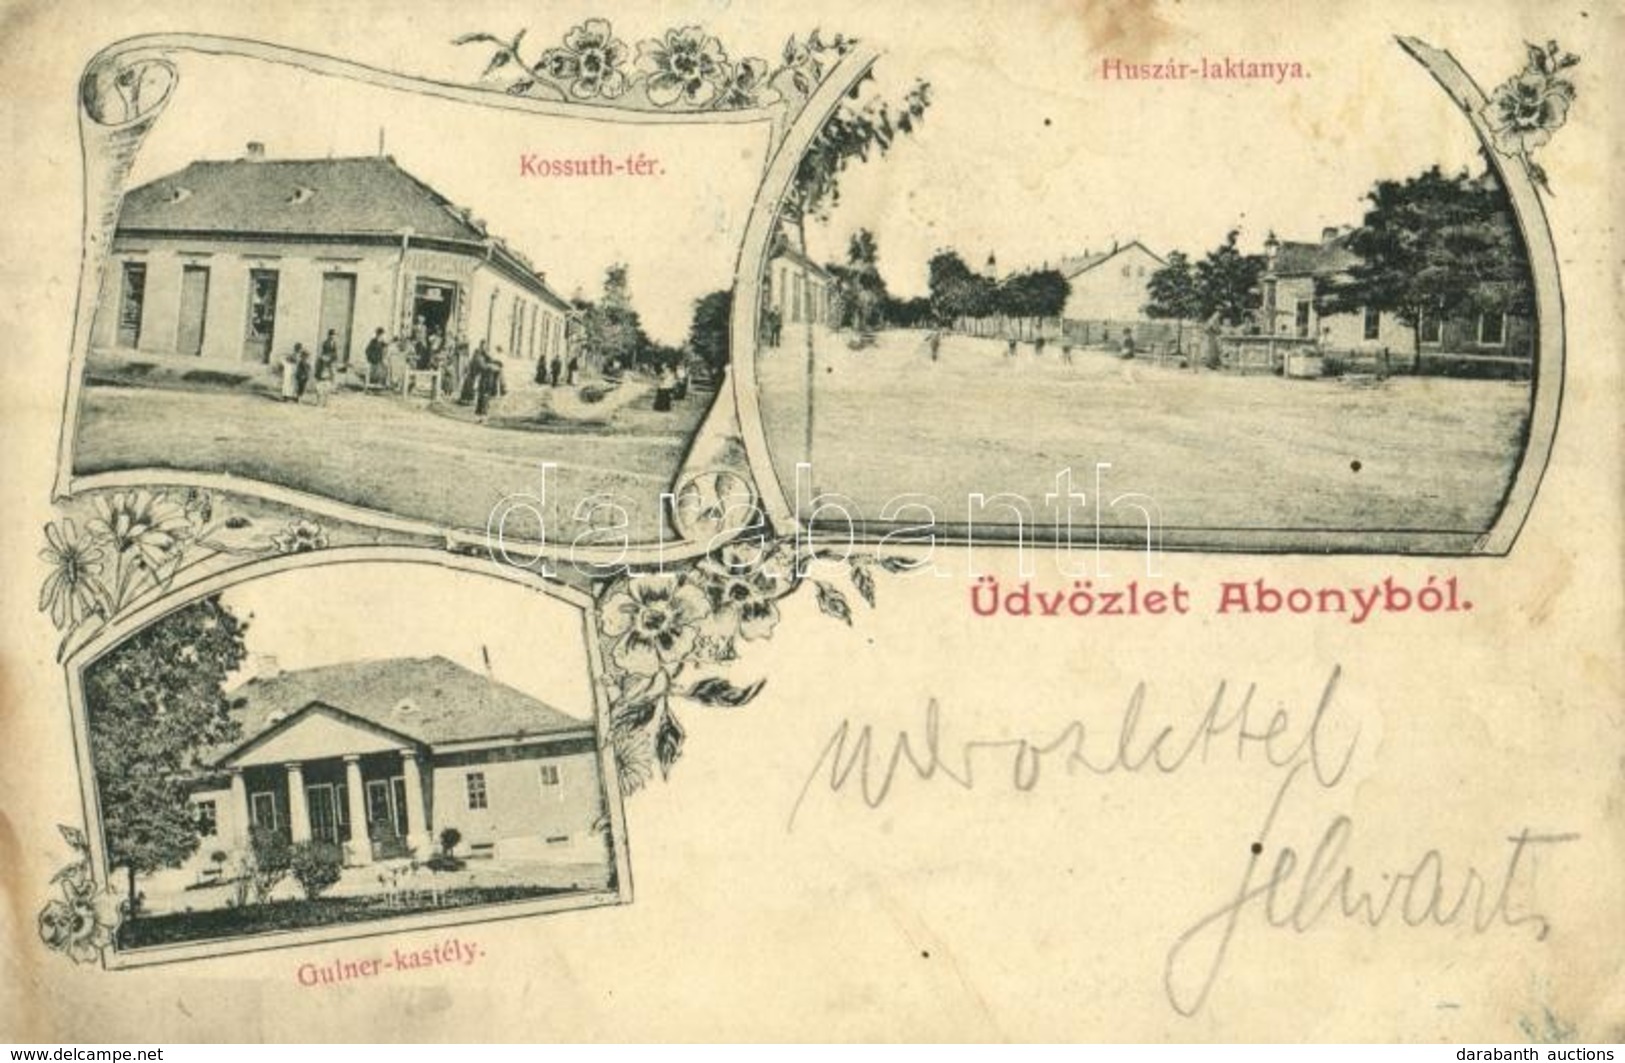 Huszár-laktanya.
Kossuth-tér.
darabanth
Üdvözlet Abonyból.
Gulner-kastély.
www.delcampe.net
darabanth auctions